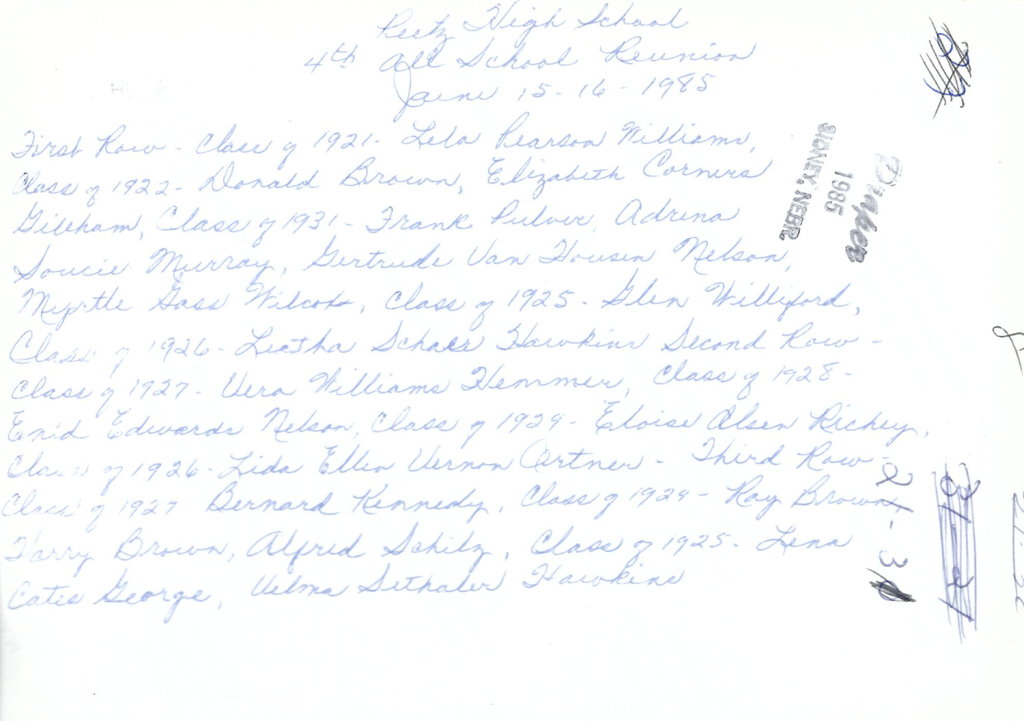 Peetz High School
4th All School Reunion
June 15-16-1985
First Row - Class of 1921 - Lela Pearson Williams,
Class of 1922 - Donald Brown, Elizabeth Corners
Gilcham, Class of 1931 - Frank Pulver, Adrena
Soucie Murray, Gertrude Van Housen Nelson,
Myrtle Gass Wilcox, Class of 1925 - Glen Williford,
Class of 1926 - Leatha Hawkins Second Row -
Class of 1927 - Vera Williams Hemmer, Class of 1928 -
Enid Edwards Nelson, Class of 1929 - Eloise Olsen Richey,
Class of 1926 - Lida Ellen Vernon Artner - Third Row -
Class of 1927 Bernard Kennedy, Class of 1929 - Ray Brown
Harry Brown, Alfred Schilz, Class of 1925 - Lena
Cates George, Velma Sithaler Hawkins
1985
SIDNEY, NEBR.
21-3